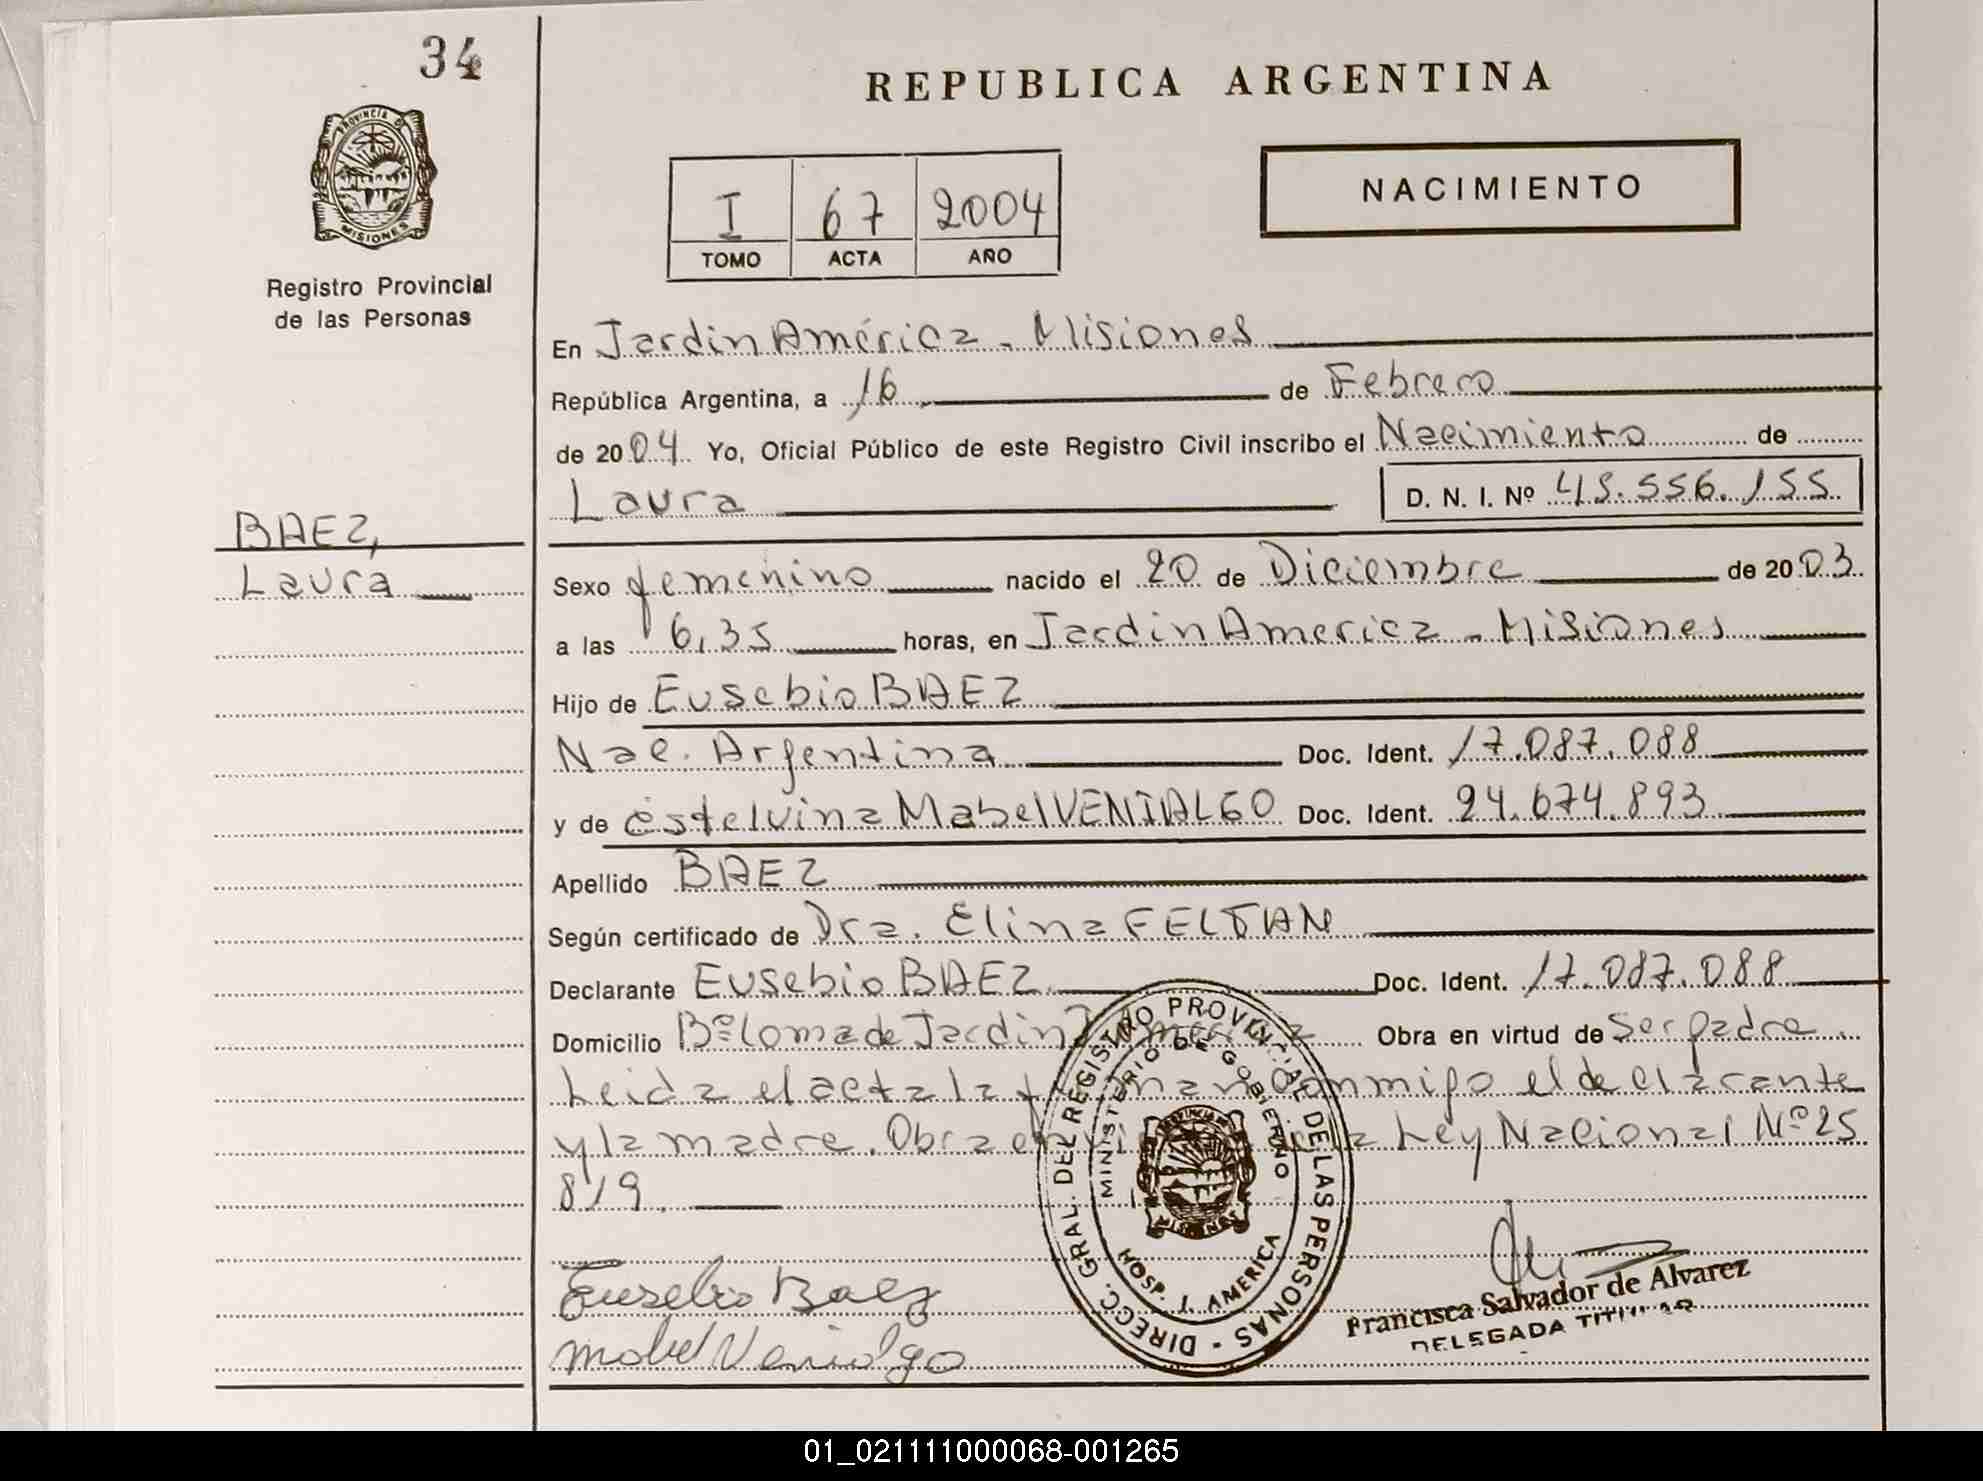 34
REPUBLICA ARGENTINA
PROVINCIA DE
MISIONES
Registro Provincial
de las Personas
I 67 2004
TOMO ACTA AÑO
NACIMIENTO
En Jardin América - Misiones
República Argentina, a 16 de Febrero
de 2004 Yo, Oficial Público de este Registro Civil inscribo el Nacimiento de
Laura D. N. I. Nº 45.556.155
BAEZ,
Laura
Sexo femenino nacido el 20 de Diciembre de 2003
a las 6,35 horas, en Jardin America - Misiones
Hijo de Eusebio BAEZ
Nac. Argentina Doc. Ident. 17.087.088
y de Estelvina Mabel VENIALGO Doc. Ident. 24.674.893
Apellido BAEZ
Según certificado de Dra. Elina FELTAN
Declarante Eusebio BAEZ Doc. Ident. 17.087.088
Domicilio Bº Loma de Jardin America Obra en virtud de Ser padre
Leida el acta la firman conmigo el declarante
y la madre. Obra en la Ley Nacional Nº 25
819.
DIRECC. GRAL. DEL REGISTRO PROVINCIAL DE LAS PERSONAS -
MINISTERIO DE GOBIERNO
HOSP. J. AMERICA
Eusebio Baez
Mabel Venialgo
Francisca Salvador de Alvarez
DELEGADA TITULAR
01_021111000068-001265